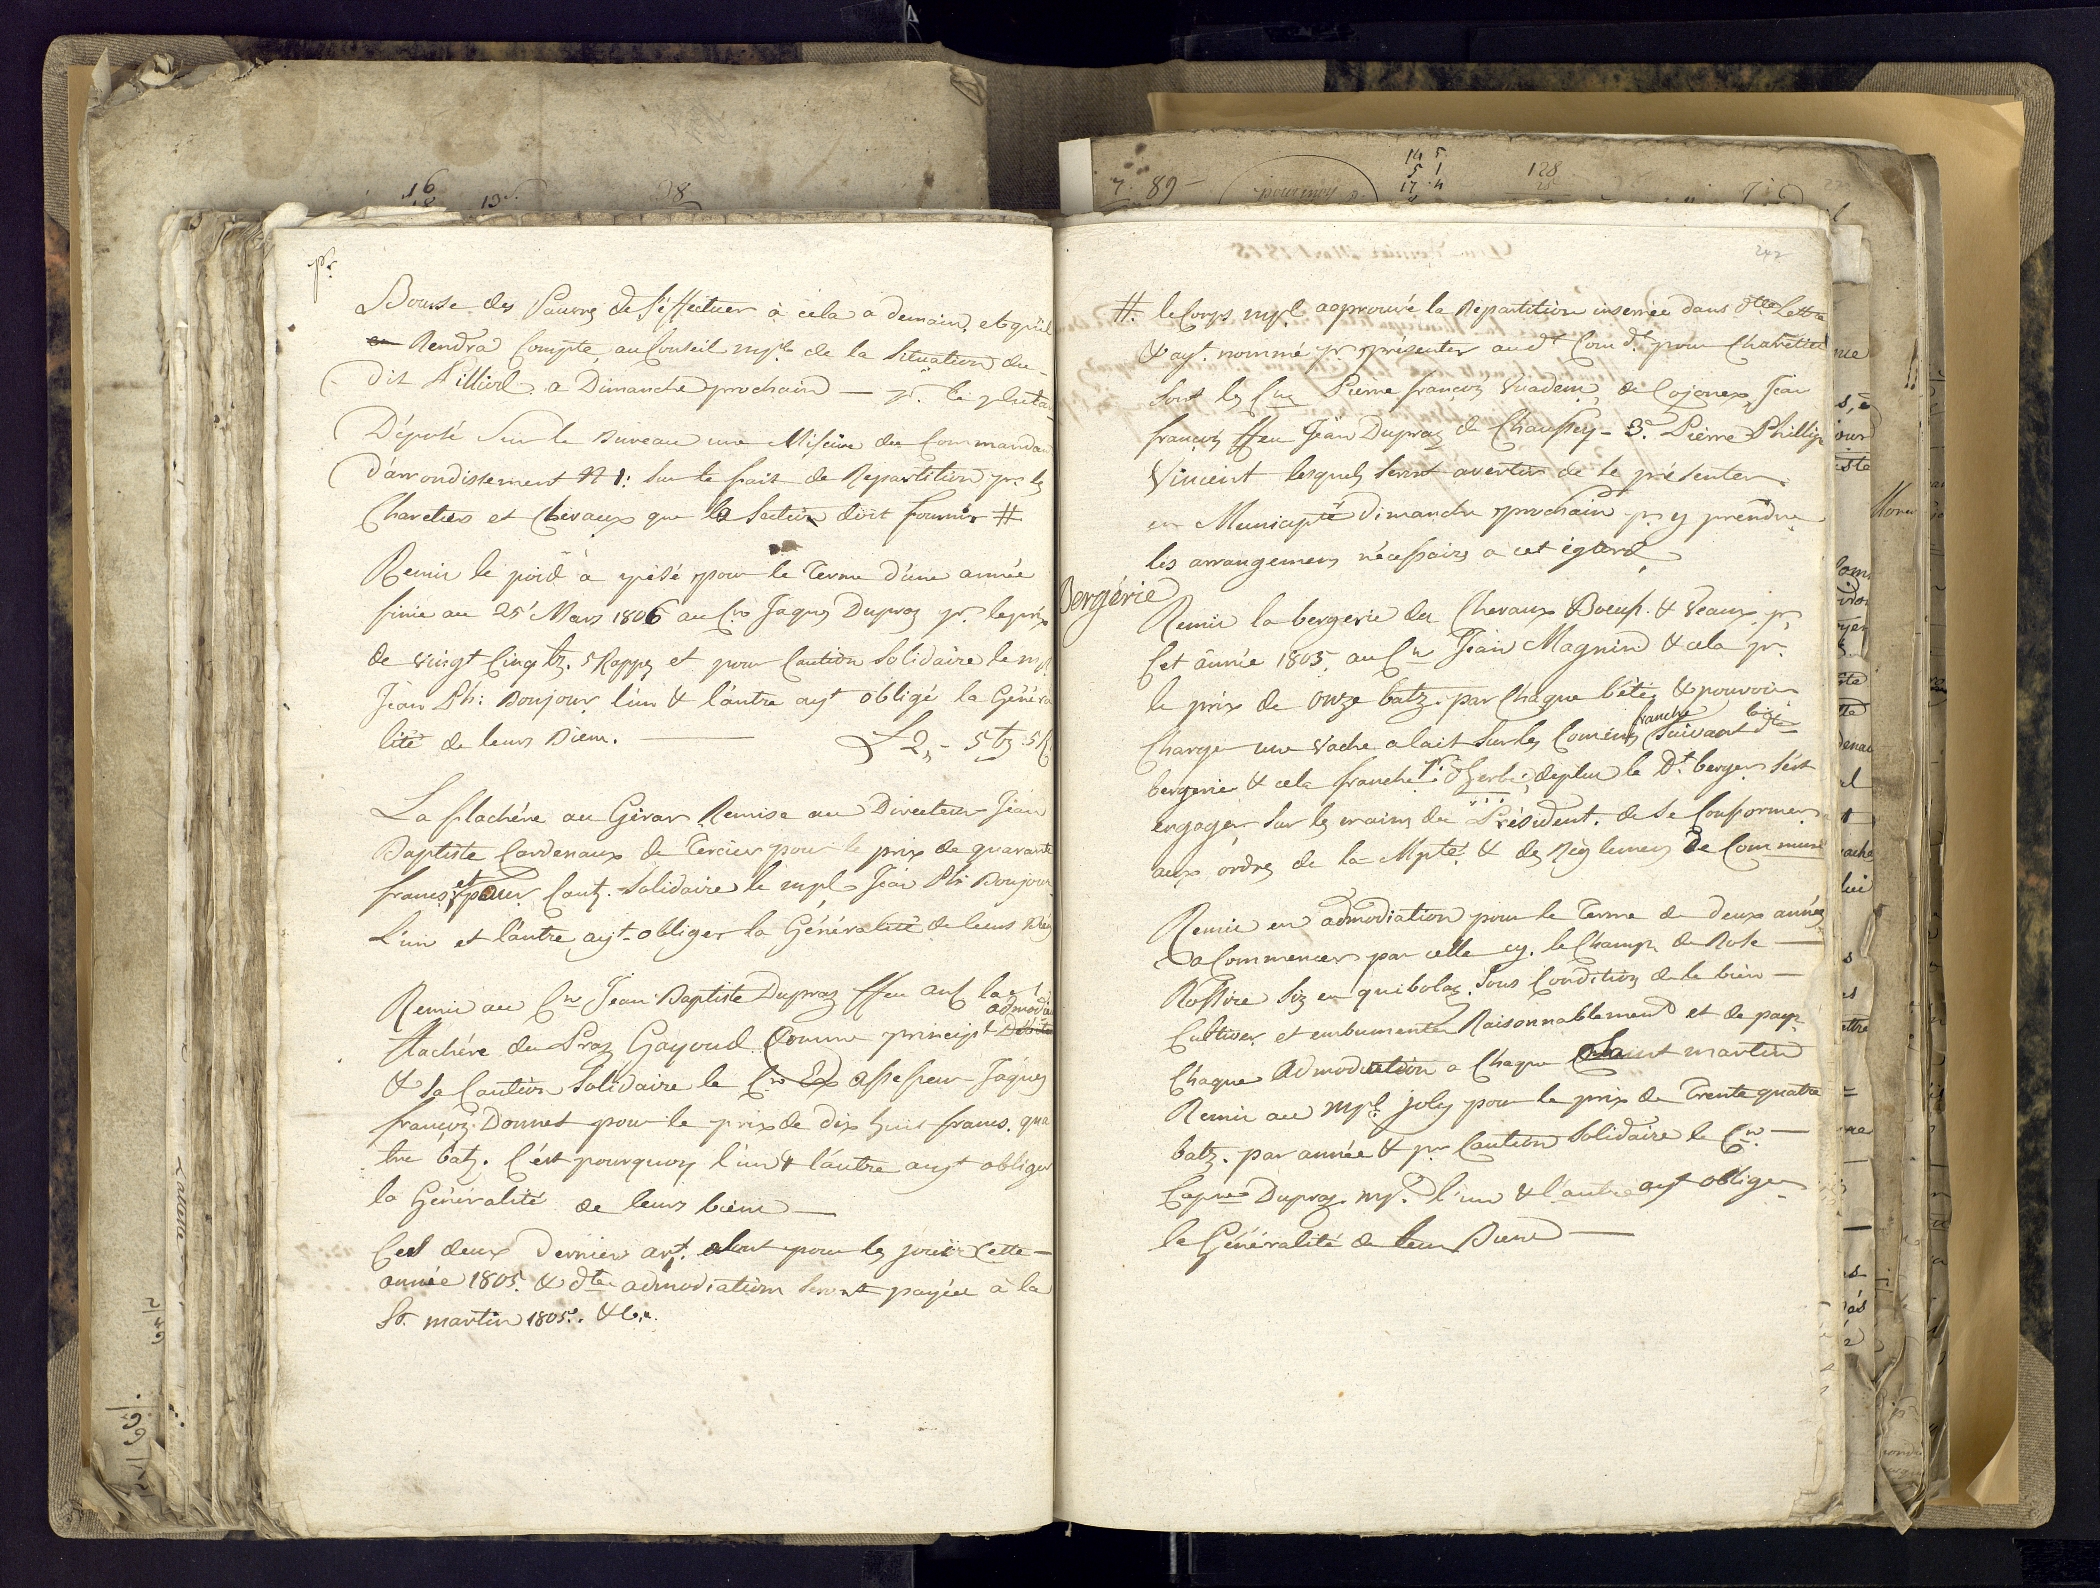 pr
Bourse des Pauvres de S'éffectuer à cela a demain, et qu'il
Rendra Compte au Conseil mpl de la Situation du
dit Dimanche prochain — pr. le plutard
Déposé Sur le Bureau une Missive du Commandant
d'arrondissement N 1: Sur le fait de Repartition pr. les
Charetiers et Chevaux que le Secteur doit fournir #
Remis le poid à pésé pour le Terme d'une année
finie au 25 Mars 1806 au Cn Jaques Dupraz pr. le prix
de vingt Cinq bz. 5 Rappes et pour Caution Solidaire le mpl.
Jean Ph: Bonjour l'un & l'autre ayt obligé la Généra
lité de leurs Biens. — £ 2,, - 5 bz. 5 R
La flachére au Girar Remise au Directeur Jean
Baptiste Cardenaux de Tercier pour le prix de quarante
francs et pour Caut. Solidaire le mpl. Jean Ph: Bonjour
L'un et l'autre ayt obliger la Généralité de leurs Biens
Remis au Cn Jean Baptiste Dupraz ffeu la
admodia
flachére du Praz Gayoud Comme principl
& sa Caution Solidaire le Cn Ex assesseur Jaques
françois Donnet pour le prix de dix huit francs. qua
tre batz. C'est pourquoy l'un & l'autre ayt obliger
la Généralité de leurs biens —
Cest deux Dernier art. étant pour les jouir Cette —
année 1805. & dte admodiation seront payée à la
St. martin 1805. &c.
242
#. le Corps mpl approuvé la Répartition inserrée dans dtte Lettre
& ayt. nommé pr. présenter au dt Comdt. pour Charetier
Sont les Cns Pierre françois Vuadens, de Cojonex, Jean
françois ffeu Jean Dupraz de Chaussey - 3e. Pierre Phillipe
Vincent lesquels Seront avertis de se présenter
en Municipté Dimanche prochain pr. y prendre
les arrangemens nécessaires a cet égard
Bergérie
Remis la bergerie des Chevaux Boeufs. & Veaux. pr
Cet année 1805. au Cn Jean Magnin & cela pr.
le prix de onze batz. par Chaque bétes & pouvoir
franche
Charger une Vache a lait Sur les Comuns Suivant dte
bergerie & cela franche pr. d'herbe; deplus le Dt. berger S'est
engager Sur les mains du Président. de se Conformer
aux ordres de la Mpté. & des Réglemens de Commune
Remis en admodiation pour le Terme de deux années
a Commencer par celle cy. le Champ de Rose —
Rossire Siz en quibolaz. Sous Condition de le bien —
Cultiver et enbumenter Raisonnablement et de payr
Chaque admodiation a Chaque Saint martin
Remis au mpl. joly pour le prix de Trente quatre
batz. par année & pr Caution Solidaire le Cn. —
Dupraz mpl. l'un & l'autre ayt obliger
la Généralité de leur Biens —